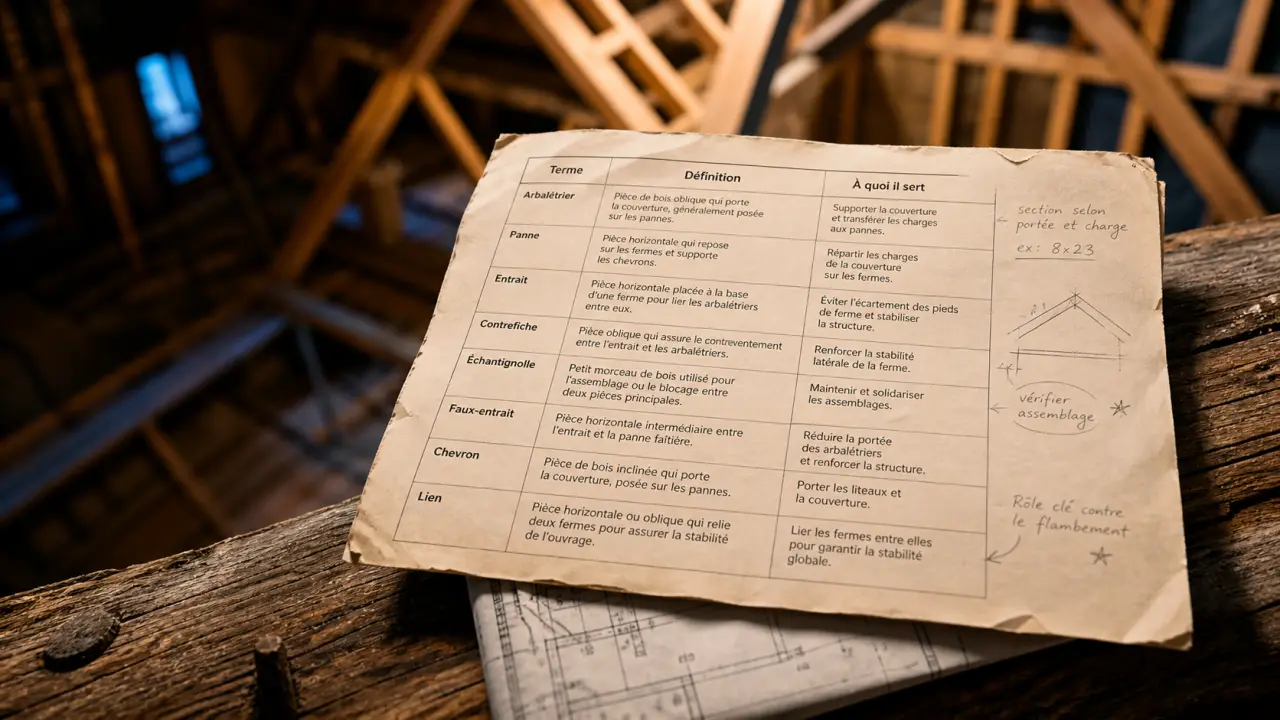 Terme
Définition
À quoi il sert
Arbalétrier
Pièce de bois oblique qui porte
la couverture, généralement posée
sur les pannes.
Supporter la couverture
et transférer les charges
aux pannes.
Panne
Pièce horizontale qui repose
sur les fermes et supporte
les chevrons.
Répartir les charges
de la couverture
sur les fermes.
Entrait
Pièce horizontale placée à la base
d'une ferme pour lier les arbalétriers
entre eux.
Éviter l'écartement des pieds
de ferme et stabiliser
la structure.
Contrefiche
Pièce oblique qui assure le contreventement
entre l'entrait et les arbalétriers.
Renforcer la stabilité
latérale de la ferme.
Échantignolle
Petit morceau de bois utilisé pour
l'assemblage ou le blocage entre
deux pièces principales.
Maintenir et solidariser
les assemblages.
Faux-entrait
Pièce horizontale intermédiaire entre
l'entrait et la panne faîtière.
Réduire la portée
des arbalétriers
et renforcer la structure.
Chevron
Pièce de bois inclinée qui porte
la couverture, posée sur les pannes.
Porter les liteaux et
la couverture.
Lien
Pièce horizontale ou oblique qui relie
deux fermes pour assurer la stabilité
de l'ouvrage.
Lier les fermes entre elles
pour garantir la stabilité
globale.
section selon
portée et charge
ex: 8x23
vérifier
assemblage
Rôle clé contre
le flambement